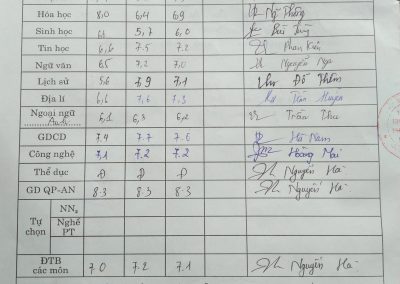 Hóa học 8,0 6,4 6,9 Ng Thống
Sinh học 6,1 5,7 6,0 Bùi
Tin học 6,6 7.5 7.2 Phan Kiên
Ngữ văn 6.5 7.2 7.0 Nguyễn Nga
Lịch sử 5.6 7.9 7.1 Thư Đỗ Thêm
Địa lí 6,6 7,6 7,3 Mai Trần Huyền
Ngoại ngữ 6,1 6,3 6,2 Trần Thu
Anh
GDCD 7.4 7.7 7.6 Hà Nam
Công nghệ 7,1 7.2 7.2 Hoàng Mai
Thể dục Đ Đ Đ Nguyễn Hà
GD QP-AN 8.3 8.3 8.3 Nguyễn Hà
Tự chọn
NN₂
Nghề PT
ĐTB
các môn 7.0 7.2 7.1 Nguyễn Hà